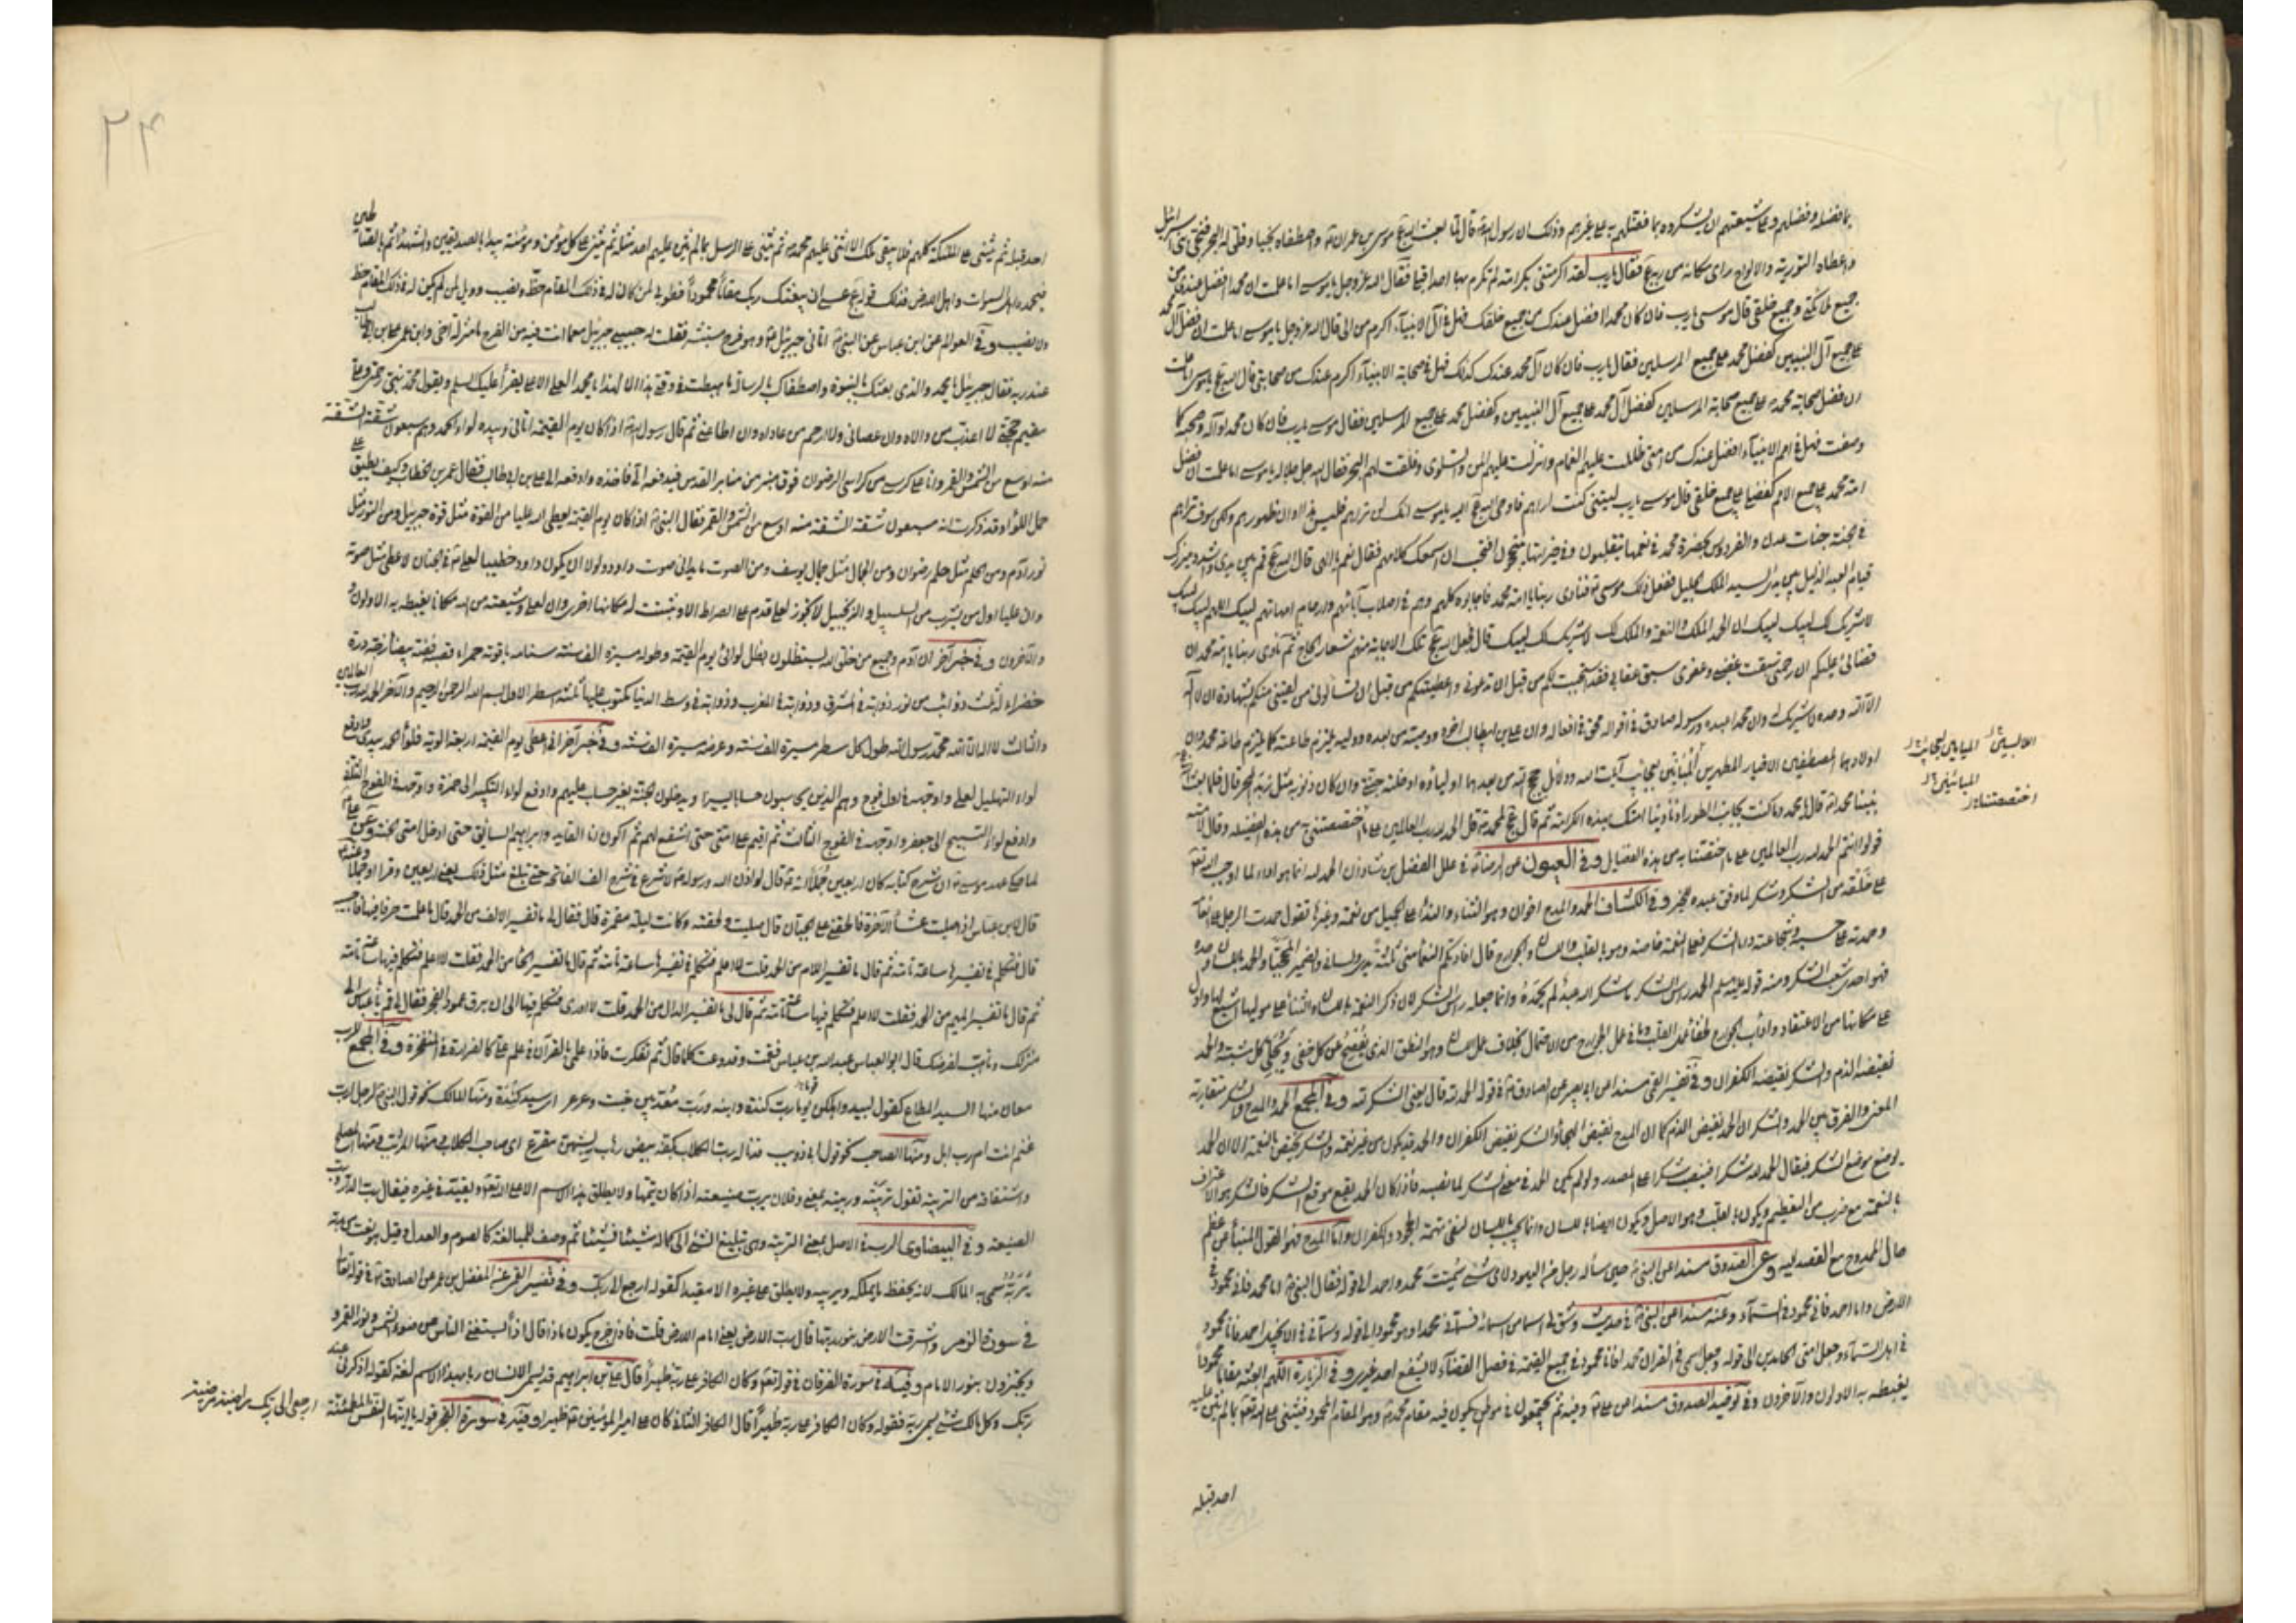 بما فضله وفضلهم وعلى شيعتهم ان يشكروه بما فضلهم به على غيرهم وذلك ان رسول الله ص قال لما بعث الله عج موسى بن عمران ع واصطفاه نجيا وفلق له البحر فنجى بنى اسرائيل
واعطاه التورية والالواح راى مكانه من ربه عج فقال يارب لقد اكرمتنى بكرامة لم تكرم بها احدا قبلى فقال الله عز وجل يا موسى اما علمت ان محمدا افضل عندى من
جميع ملائكتى وجميع خلقى قال موسى يارب فان كان محمد افضل عندك من جميع خلقك فهل فى آل الانبياء اكرم من الى قال الله عز وجل يا موسى اما علمت ان فضل آل محمد
على جميع آل النبيين كفضل محمد على جميع المرسلين فقال يارب فان كان آل محمد عندك كذلك فهل فى صحابة الانبياء اكرم عندك من صحابتى قال الله عج يا موسى اما علمت
ان فضل صحابة محمد على جميع صحابة المرسلين كفضل آل محمد على جميع آل النبيين وكفضل محمد على جميع المرسلين فقال موسى يارب فان كان محمد وآله وصحبه كما
وصفت فهل فى امم الانبياء افضل عندك من امتى ظللت عليهم الغمام وانزلت عليهم المن والسلوى وفلقت لهم البحر فقال الله جل جلاله يا موسى اما علمت ان فضل
امة محمد على جميع الامم كفضله على جميع خلقى قال موسى يارب ليتنى كنت اراهم فاوحى الله عج اليه يا موسى انك لن تراهم فليس هذا اوان ظهورهم ولكن سوف تراهم
فى الجنة جنات عدن والفردوس بحضرة محمد فى نعيمها يتقلبون وفى خيراتها يتبجحون افتحب ان اسمعك كلامهم فقال نعم يا الهى قال الله عج قم بين يدى واشدد ميزرك
قيام العبد الذليل بين يدى السيد الملك الجليل ففعل ذلك موسى ع فنادى ربنا يا امة محمد فاجابوه كلهم وهم فى اصلاب آبائهم وارحام امهاتهم لبيك اللهم لبيك لبيك
لا شريك لك لبيك ان الحمد والنعمة والملك لك لا شريك لك لبيك قال فجعل الله عج تلك الاجابة منهم شعار الحاج ثم نادى ربنا يا امة محمد ان
قضائى عليكم ان رحمتى سبقت غضبى وعفوى سبق عقابى فقد استجبت لكم من قبل ان تدعونى واعطيتكم من قبل ان تسألونى من لقينى منكم بشهادة ان لا اله
الا الله وحده لا شريك له وان محمدا عبده ورسوله صادق فى اقواله محق فى افعاله وان على بن ابيطالب اخوه ووصيه من بعده ووليه يلتزم طاعته كما يلتزم طاعة محمد وان
اولياءه المصطفين الاخيار المطهرين المبانين بعجايب آيات الله ودلائل حجج الله من بعدهما اولياؤه ادخلته جنتى وان كان ذنوبه مثل زبد البحر قال فلما بعث
نبينا محمدا ص قال يا محمد وما كنت بجانب الطور اذ نادينا امتك بهذه الكرامة ثم قال عج لمحمد ص قل الحمد لله رب العالمين على ما اختصصتنى به من هذه الفضيلة وقال لامته
قولوا انتم الحمد لله رب العالمين على ما اختصتنا به من هذه الفضايل وفى العيون عن الرضا ع فى علل الفضل بن شاذان الحمد لله انما هو اداء لما اوجب الله تعالى
على خلقه من الشكر وشكر لما وفق عبده للخير وفى الكشاف الحمد والمدح اخوان وهو الثناء والنداء على الجميل من نعمة وغيرها تقول حمدت الرجل على انعامه
وحمدته على حسبه وشجاعته واما الشكر فعلى النعمة خاصة وهو بالقلب واللسان والجوارح قال افادتكم النعماء منى ثلثة يدى ولسانى والضمير المحجبا والحمد باللسان وحده
فهو احدى شعب الشكر ومنه قوله عليه السلم الحمد راس الشكر ما شكر الله عبد لم يحمده وانما جعله راس الشكر لان ذكر النعمة باللسان والثناء على موليها اشيع لها وادل
على مكانها من الاعتقاد وآداب الجوارح لخفاء عمل القلب وما فى عمل الجوارح من الاحتمال بخلاف عمل اللسان وهو النطق الذى يفصح عن كل خفى ويجلى كل مشتبه والحمد
نقيضه الذم والشكر نقيضه الكفران وفى تفسير القمى مسندا عن ابى بصير عن الصادق ع فى قوله الحمد لله قال يعنى الشكر لله وفى المجمع الحمد والمدح والشكر متقاربة
المعنى والفرق بين الحمد والشكر ان الحمد نقيض الذم كما ان المدح نقيض الهجاء والشكر نقيض الكفران والحمد قد يكون من غير نعمة والشكر يختص بالنعمة الا ان الحمد
يوضع موضع الشكر فيقال الحمد لله شكرا فينصب شكرا على المصدر ولو لم يكن الحمد فى معنى الشكر لما نصبه فاذا كان الحمد يقع موقع الشكر فالشكر هو الاعتراف
بالنعمة مع ضرب من التعظيم ويكون بالقلب وهو الاصل ويكون ايضا باللسان وانما يجب باللسان لنفى تهمة الجحود والكفران واما المدح فهو القول المنبئ عن عظم
حال الممدوح مع القصد اليه وعن الصدوق مسندا عن النبى ص حين سأله رجل من اليهود لاى شئ سميت محمدا واحمد الى قوله فقال النبى ص اما محمد فانى محمود فى
الارض واما احمد فانى محمود فى السماء وعنه مسندا عن النبى ص فى حديث وشق لى اسما من اسمائه فسمانى محمدا وهو محمود الى قوله وسمانى فى الانجيل احمد فانا محمود
فى اهل السماء وجعل امتى الحامدين الى قوله وجعل اسمى فى القران محمد فانا محمود فى جميع القيمة فى فصل القضاء لا يشفع احد غيرى وفى الزيارة اللهم ابعثه مقاما محمودا
يغبطه به الاولون والآخرون وفى توحيد الصدوق مسندا عن على ع وفيه ثم يجتمعون فى موطن يكون فيه مقام محمد ص وهو المقام المحمود فيثنى على الله تعالى بما لم يثن عليه
احد قبله
المبائنين
اختصصتنا
٢٤
احد قبله ثم يثنى على الملئكة كلهم فلا يبقى ملك الا اثنى عليهم محمد ص ثم يثنى على الرسل بما لم يثن عليهم احد مثله ثم يثنى على كل مؤمن ومؤمنة يبدا بالصديقين والشهداء ثم بالصالحين
فيحمده اهل السموات واهل الارض فذلك قوله عج عسى ان يبعثك ربك مقاما محمودا فطوبى لمن كان له فى ذلك المقام حظ ونصيب وويل لمن لم يكن له فى ذلك المقام حظ
ولا نصيب وفى العوالم عن ابن عباس عن النبى ص اتانى جبرئيل ع وهو فرح مستبشر فقلت له حبيبى جبرئيل مع ما انت فيه من الفرح ما منزلة اخى وابن عمى على بن ابيطالب
عند ربه فقال جبرئيل يا محمد والذى بعثك بالنبوة واصطفاك بالرسالة ما هبطت فى وقتى هذا الا لهذا يا محمد العلى الاعلى يقرأ عليك السلم ويقول محمد نبى رحمتى وعلى
مقيم حجتى لا اعذب من والاه وان عصانى ولا ارحم من عاداه وان اطاعنى ثم قال رسول الله ص اذا كان يوم القيمة اتانى وبيده لواء الحمد وهو سبعون شقة الشقة
منه اوسع من الشمس والقمر وانا على كرسى من كراسى الرضوان فوق منبر من منابر القدس فيدفعه الى فآخذه وادفعه الى على بن ابيطالب فقال عمر بن الخطاب وكيف يطيق على
حمل اللواء وقد ذكرت انه سبعون شقة الشقة منه اوسع من الشمس والقمر فقال النبى ص اذا كان يوم القيمة يعطى الله عليا من القوة مثل قوة جبرئيل ومن النور مثل
نور آدم ومن الحلم مثل حلم رضوان ومن الجمال مثل جمال يوسف ومن الصوت ما يدانى صوت داود ولولا ان يكون داود خطيبا لعلى ع فى الجنان لاعطى مثل صوته
وان عليا اول من يشرب من السلسبيل والزنجبيل لا يجوز لعلى قدم على الصراط الا وثبتت له مكانها اخرى وان لعلى وشيعته من الله مكانا يغبطه به الاولون
والآخرون وفى خبر آخر ان آدم وجميع من خلق الله يستظلون بظل لوائى يوم القيمة وطوله مسيرة الف سنة سنامه ياقوتة حمراء قصبه فضة بيضاء زجه درة
خضراء له ثلث ذوائب من نور ذوابة فى المشرق وذوابة فى المغرب وذوابة فى وسط الدنيا مكتوب عليها ثلثة اسطر الاول بسم الله الرحمن الرحيم والآخر الحمد لله رب العالمين
والثالث لا اله الا الله محمد رسول الله طول كل سطر مسيرة الف سنة وعرضه مسيرة الف سنة وفى خبر آخر انى اعطى يوم القيمة اربعة الوية فلواء الحمد بيدى وادفع
لواء التهليل لعلى واوجهه فى اول فوج وهم الذين يحاسبون حسابا يسيرا ويدخلون الجنة بغير حساب عليهم وادفع لواء التكبير الى حمزة واوجهه فى الفوج الثانى
وادفع لواء التسبيح الى جعفر واوجهه فى الفوج الثالث ثم اقيم على امتى حتى اشفع لهم ثم اكون انا القائد وابراهيم السائق حتى ادخل امتى الجنة وعن
لما حكى عهد موسى ع ان شرح كتابه كان اربعين جملا انه ع قال لو اذن الله ورسوله لا شرع فى شرح الف الفاتحة حتى تبلغ مثل ذلك يعنى اربعين وقرا او جملا وعنه ع
قال لابن عباس اذ صليت عشاء الآخرة فالحقنى على الجبان قال صليت ولحقته وكانت ليلة مقمرة قال فقال لى ما تفسير الالف من الحمد قال ما علمت حرفا فيها فاجيبه
قال فتكلم فى تفسيرها ساعة تامة ثم قال ما تفسير اللام من الحمد قلت لا اعلم فتكلم فى تفسيرها ساعة تامة ثم قال ما تفسير الحاء من الحمد فقلت لا اعلم فتكلم فيها ساعة تامة
ثم قال ما تفسير الميم من الحمد فقلت لا اعلم فتكلم فيها ساعة تامة ثم قال لى ما تفسير الدال من الحمد قلت لا ادرى فتكلم فيها الى ان برق عمود الفجر فقال لى قم يابن عباس الى
منزلك وتأهب لفرضك قال ابو العباس عبد الله بن عباس فقمت وقد وعيت كلما قال ثم تفكرت فاذا علمى بالقرآن فى علم على كالقرارة فى المثعنجر وفى المجمع للرب
معان منها السيد المطاع كقول لبيد واهلكن يوما رب كندة وابنه ورب معد بين خبت وعرعر اى سيد كندة ومنها المالك نحو قول النبى لرجل ارب
غنم انت ام رب ابل ومنها الصاحب نحو قول ابى ذويب قد ناله رب الكلاب بكفه بيض رهاب ريشهن مقزع اى صاحب الكلاب ومنها المربى ومنها المصلح
واشتقاقه من التربية تقول ربيته ورببته بمعنى وفلان يرب صنيعته اذا كان يتمها ولا يطلق هذا الاسم الا على الله تعالى ويقيد فى غيره فيقال رب الدار ورب
الضيعة وفى البيضاوى الرب فى الاصل بمعنى التربية وهى تبليغ الشئ الى كماله شيئا فشيئا ثم وصف للمبالغة كالصوم والعدل وقيل هو نعت من ربه
يربه سمى به المالك لانه يحفظ ما يملكه ويربيه ولا يطلق على غيره الا مقيدا كقوله ارجع الى ربك وفى تفسير القمى عنه المفضل بن عمر عن الصادق ع فى قوله تعالى
فى سورة الزمر واشرقت الارض بنور ربها قال رب الارض يعنى امام الارض قلت فاذا خرج يكون ماذا قال اذا يستغنى الناس عن ضوء الشمس ونور القمر و
يجتزون بنور الامام وفيه فى سورة الفرقان فى قوله تعالى وكان الكافر على ربه ظهيرا قال على بن ابراهيم قد يسمى الانسان ربا بهذا الاسم لغة كقوله اذكرنى عند
ربك وكل مالك شئ يسمى ربه فقوله وكان الكافر على ربه ظهيرا قال الكافر الثانى كان على امير المؤمنين ع ظهيرا وفيه فى سورة الفجر قوله يا ايتها النفس المطمئنة
ارجعى الى ربك راضية مرضية